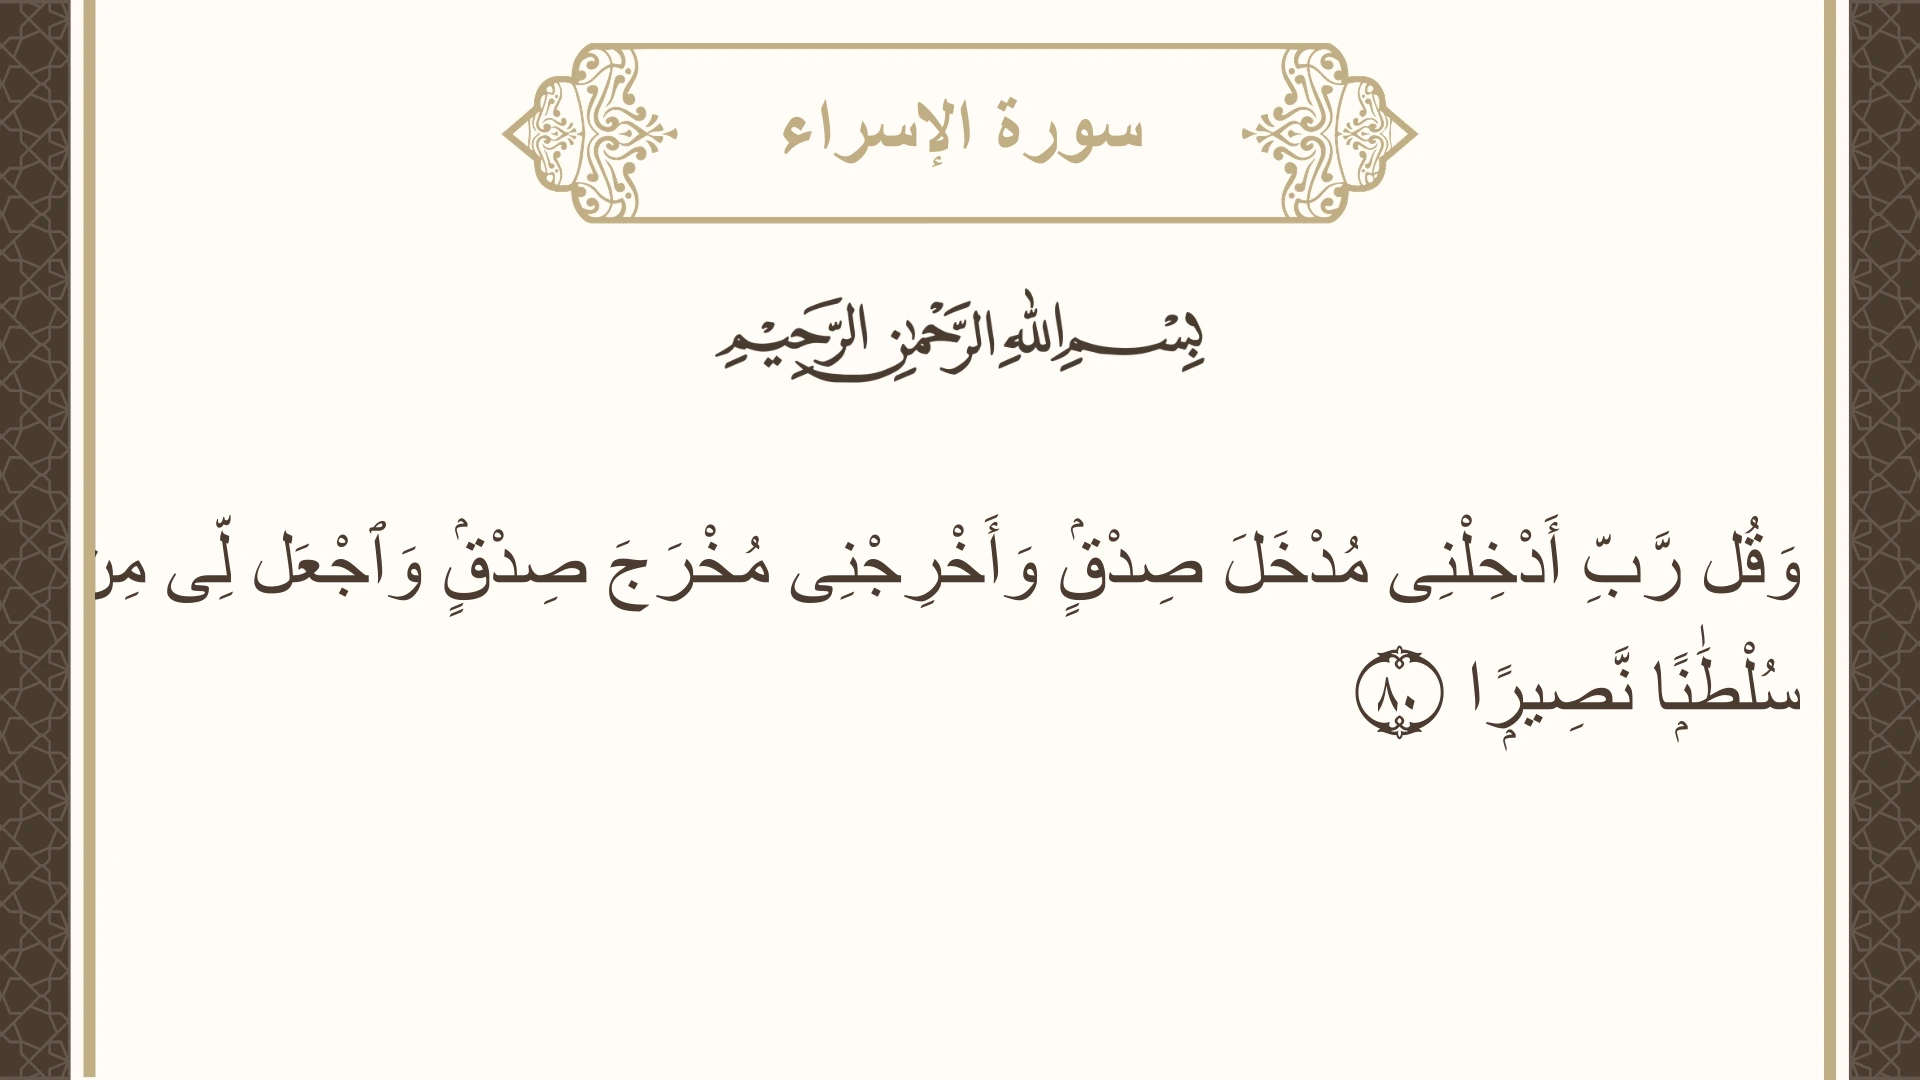 سورة الإسراء
بِسْمِ اللهِ الرَّحْمٰنِ الرَّحِيْمِ
وَقُل رَّبِّ أَدْخِلْنِى مُدْخَلَ صِدْقٍۢ وَأَخْرِجْنِى مُخْرَجَ صِدْقٍۢ وَٱجْعَل لِّى مِن
سُلْطَٰنًۭا نَّصِيرًۭا ٨٠